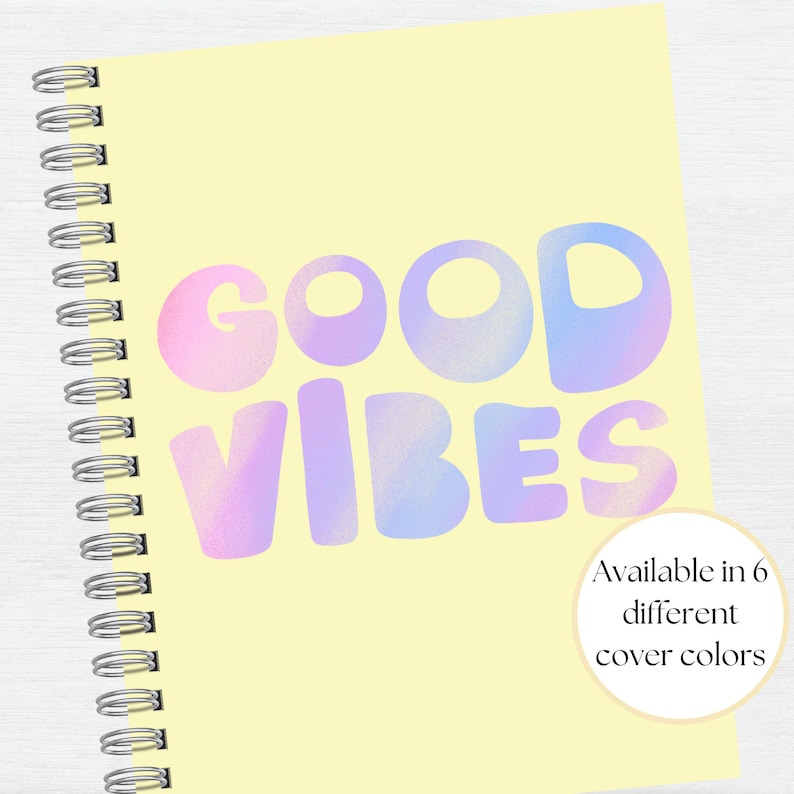 GOOD
VIBES
Available in 6
different
cover colors